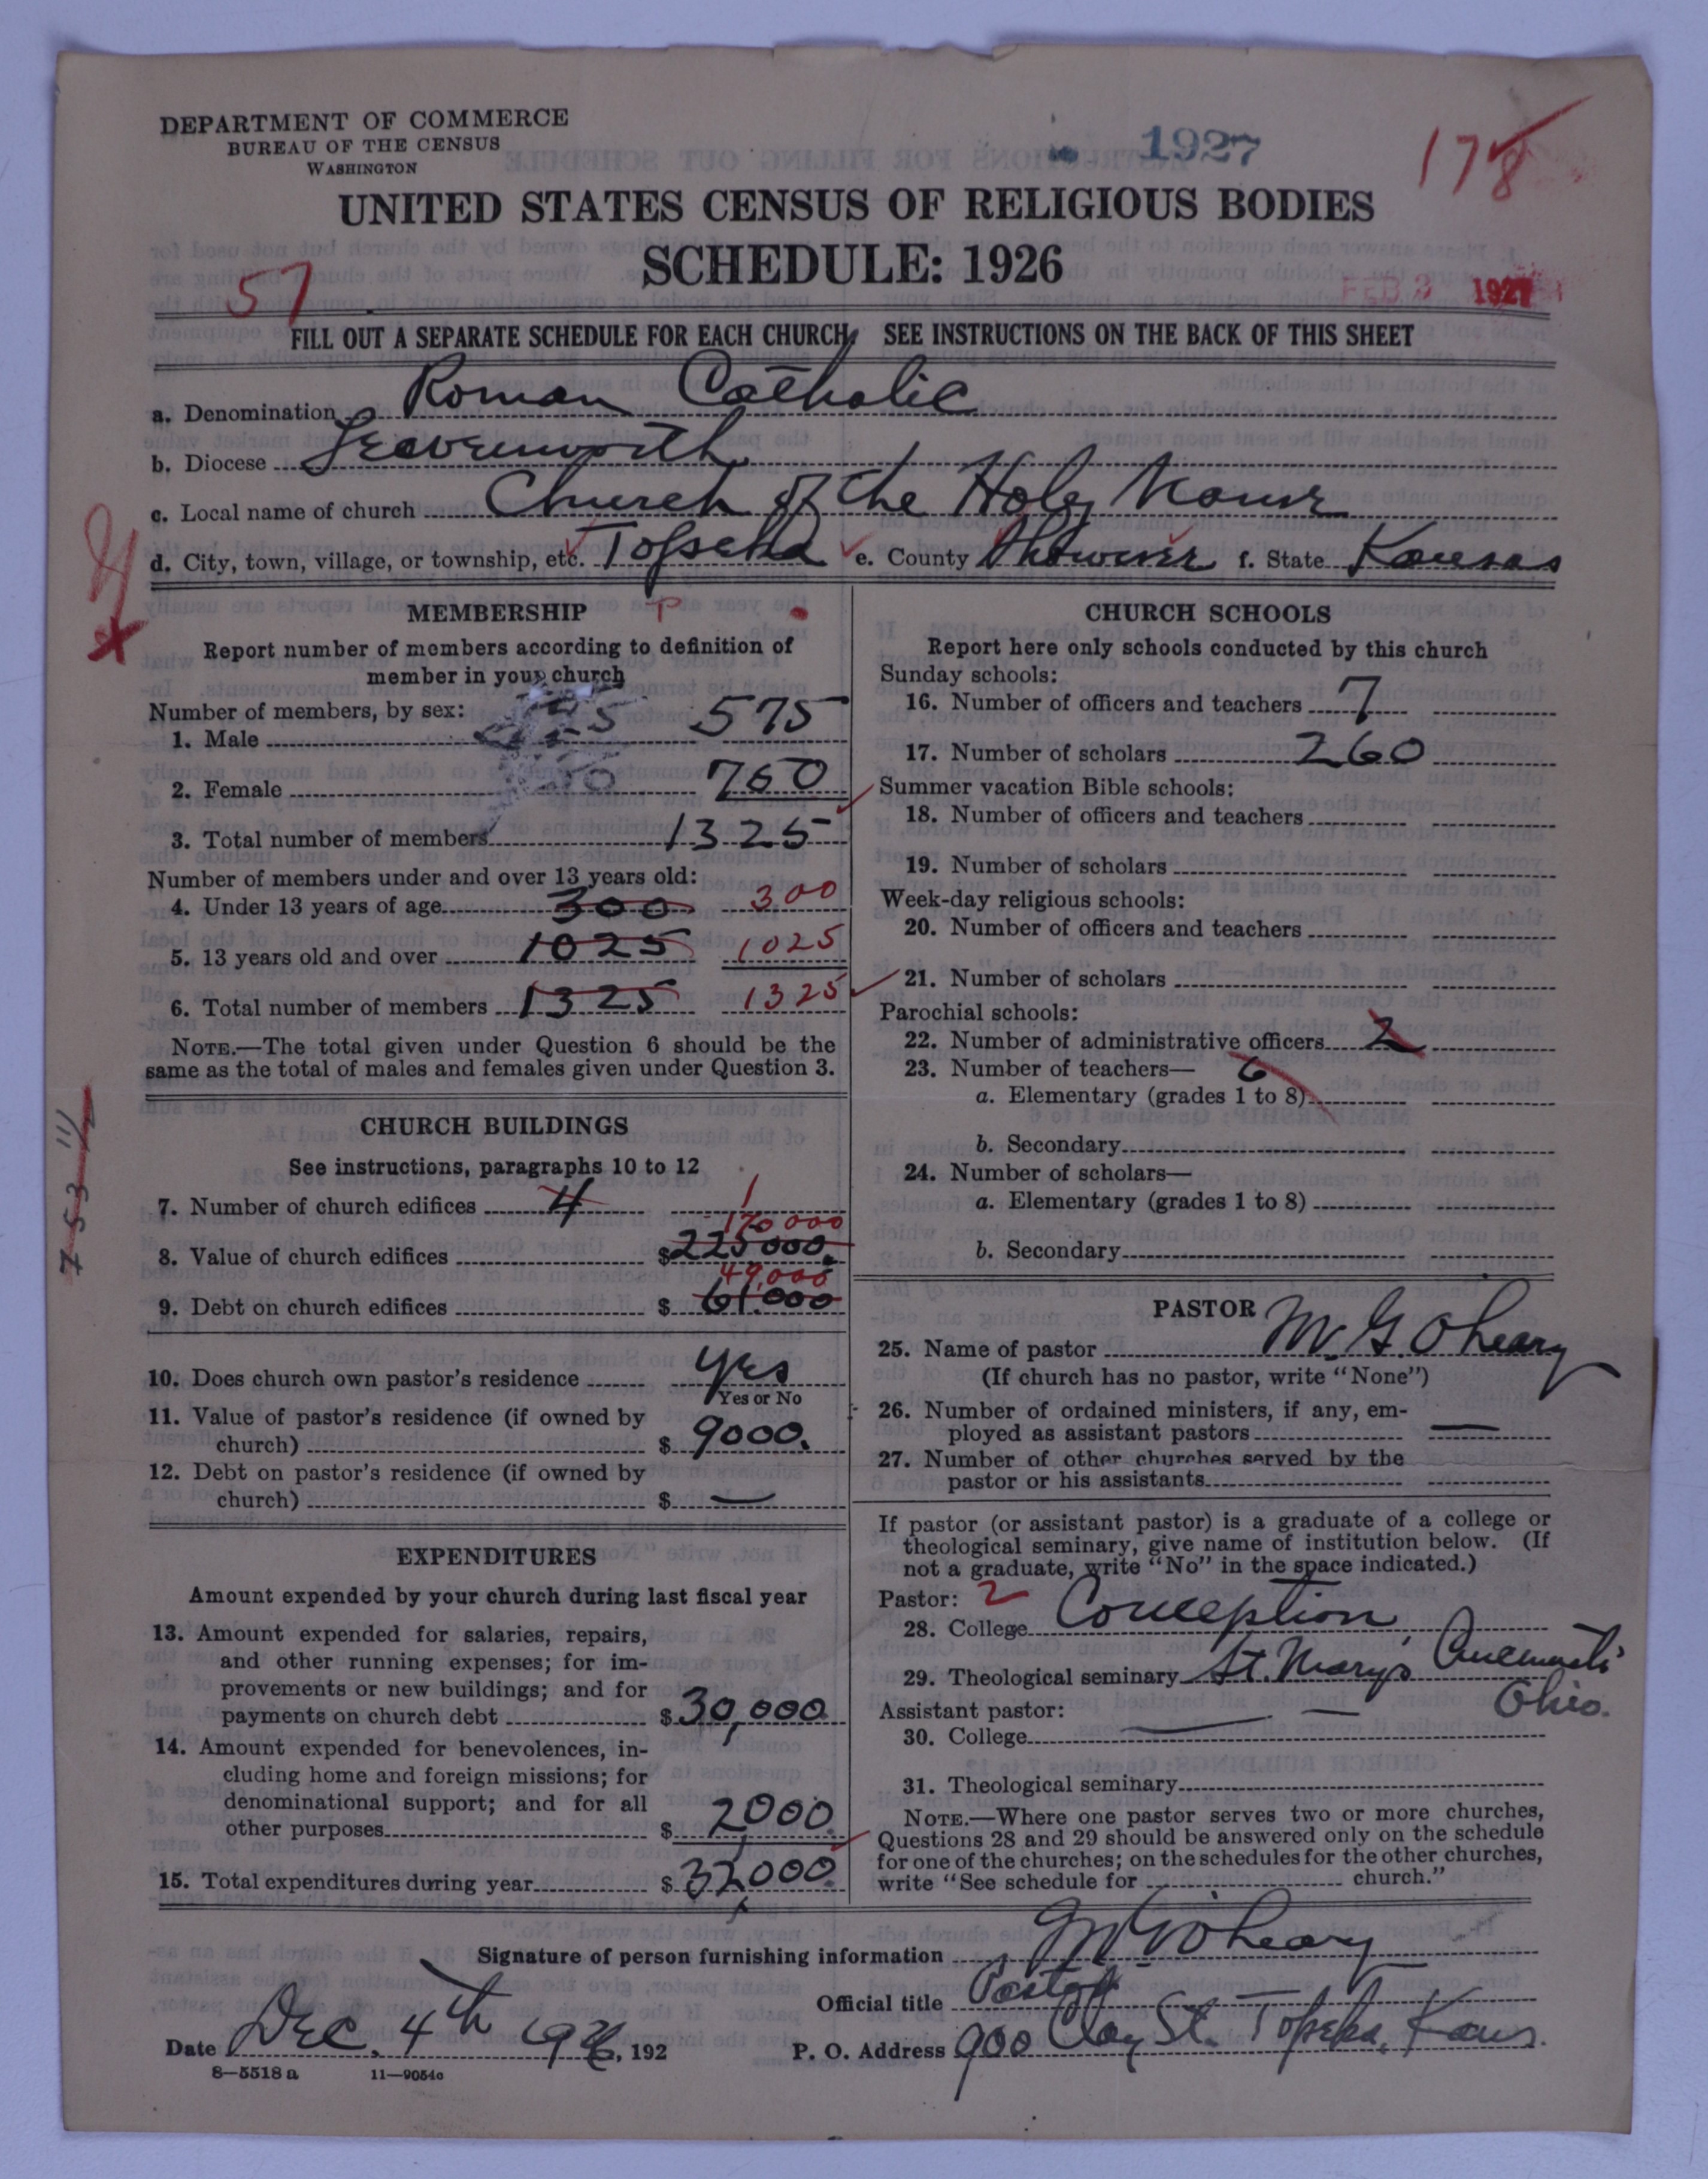 DEPARTMENT OF COMMERCE
BUREAU OF THE CENSUS
WASHINGTON
1927
178
UNITED STATES CENSUS OF RELIGIOUS BODIES
SCHEDULE: 1926
57
FEB 3 1927
FILL OUT A SEPARATE SCHEDULE FOR EACH CHURCH. SEE INSTRUCTIONS ON THE BACK OF THIS SHEET
a. Denomination Roman Catholic
b. Diocese Leavenworth
c. Local name of church Church of the Holy Name
d. City, town, village, or township, etc. Topeka e. County Shawnee f. State Kansas
MEMBERSHIP P
Report number of members according to definition of
member in your church
Number of members, by sex:
1. Male 575
2. Female 750
3. Total number of members 1325
Number of members under and over 13 years old:
4. Under 13 years of age 300 300
5. 13 years old and over 1025 1025
6. Total number of members 1325 1325
NOTE.—The total given under Question 6 should be the
same as the total of males and females given under Question 3.
CHURCH BUILDINGS
See instructions, paragraphs 10 to 12
7. Number of church edifices 4 1
170000
8. Value of church edifices $ 225000.
49,000
9. Debt on church edifices $ 61.000
10. Does church own pastor's residence yes
Yes or No
11. Value of pastor's residence (if owned by
church) $ 9000.
12. Debt on pastor's residence (if owned by
church) $ —
EXPENDITURES
Amount expended by your church during last fiscal year
13. Amount expended for salaries, repairs,
and other running expenses; for im-
provements or new buildings; and for
payments on church debt $ 30,000
14. Amount expended for benevolences, in-
cluding home and foreign missions; for
denominational support; and for all
other purposes $ 2000.
15. Total expenditures during year $ 32,000
CHURCH SCHOOLS
Report here only schools conducted by this church
Sunday schools:
16. Number of officers and teachers 7
17. Number of scholars 260
Summer vacation Bible schools:
18. Number of officers and teachers
19. Number of scholars
Week-day religious schools:
20. Number of officers and teachers
21. Number of scholars
Parochial schools:
22. Number of administrative officers 2
23. Number of teachers— 6
a. Elementary (grades 1 to 8)
b. Secondary
24. Number of scholars—
a. Elementary (grades 1 to 8)
b. Secondary
PASTOR
25. Name of pastor M. G. O'Leary
(If church has no pastor, write "None")
26. Number of ordained ministers, if any, em-
ployed as assistant pastors —
27. Number of other churches served by the
pastor or his assistants
If pastor (or assistant pastor) is a graduate of a college or
theological seminary, give name of institution below. (If
not a graduate, write "No" in the space indicated.)
Pastor: 2
28. College Conception
29. Theological seminary St. Mary's, Cincinnati
Ohio.
Assistant pastor:
30. College — —
31. Theological seminary
NOTE.—Where one pastor serves two or more churches,
Questions 28 and 29 should be answered only on the schedule
for one of the churches; on the schedules for the other churches,
write "See schedule for church."
Signature of person furnishing information M. G. O'Leary
Official title Pastor
Date Dec. 4th 1926, 192
P. O. Address 900 Clay St. Topeka, Kans.
8—5518 a 11—9054c